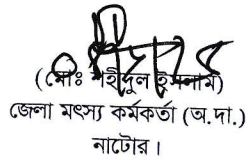 (মোঃ শহীদুল ইসলাম)
জেলা মৎস্য কর্মকর্তা (অ.দা.)
নাটোর।